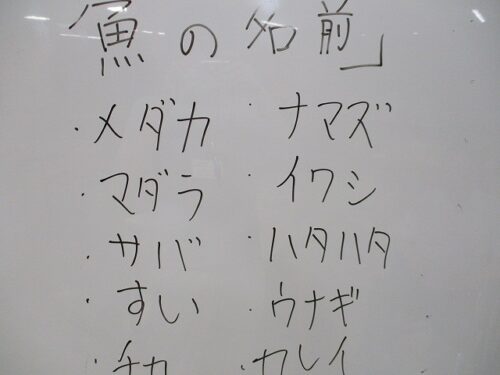 「魚の名前」
・メダカ
・マダラ
・サバ
・すい
・チカ
・ナマズ
・イワシ
・ハタハタ
・ウナギ
・カレイ